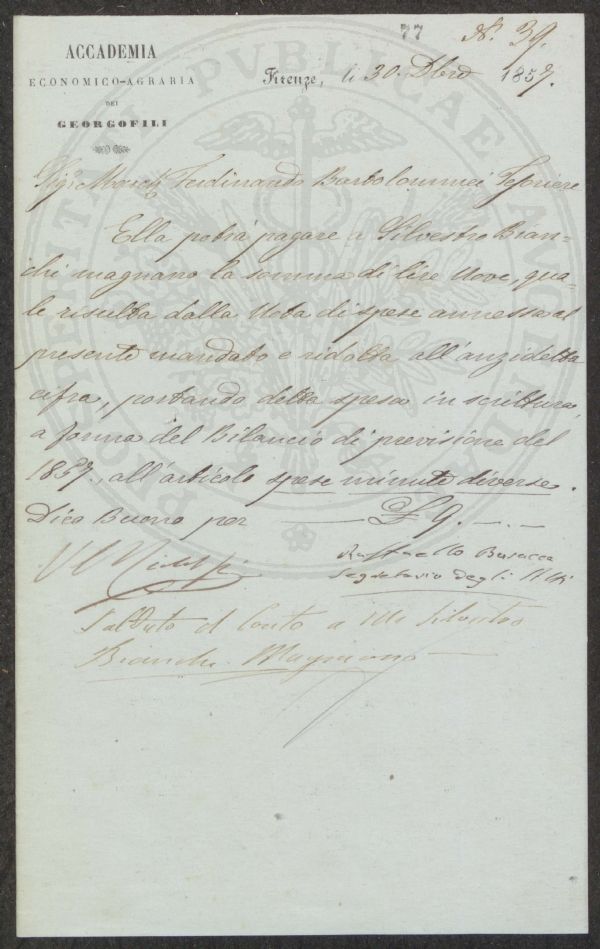 77 N. 39.
ACCADEMIA
ECONOMICO-AGRARIA
DEI
GEORGOFILI
Firenze, li 30. Dbre 1857.
Sigr. March. Ferdinando Bartolommei Tesoriere
Ella potrà pagare a Silvestro Bian=
chi magnano la somma di lire Nove, qua=
le risulta dalla Nota di spese annessa al
presente mandato e ridotta all'anzidetta
cifra, portando detta spesa in scrittura,
a forma del Bilancio di previsione del
1857., all'articolo spese minute diverse.
Dico Buono per — £ 9. —.—
Raffaello Busacca
Segretario degli Atti
Saldato il Conto a me Silvestro
Bianchi Magnano
PROSPERITATI PUBLICAE AUGENDAE